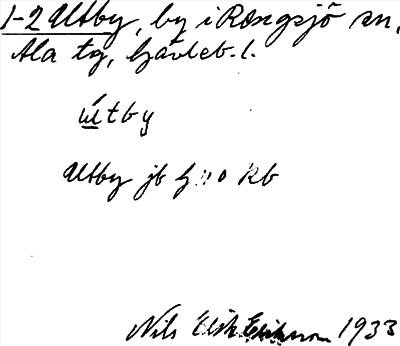 1-2 Utby, by i Rengsjö sn,
Ala tg, Gävleb. l.
útby
Utby jb kb
Nils Erik Eriksson 1933